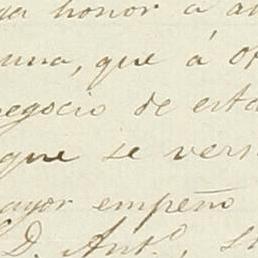 honor a
una, que á
negocio de esta
que se vers
ayor empeño
D. Ant.º, s